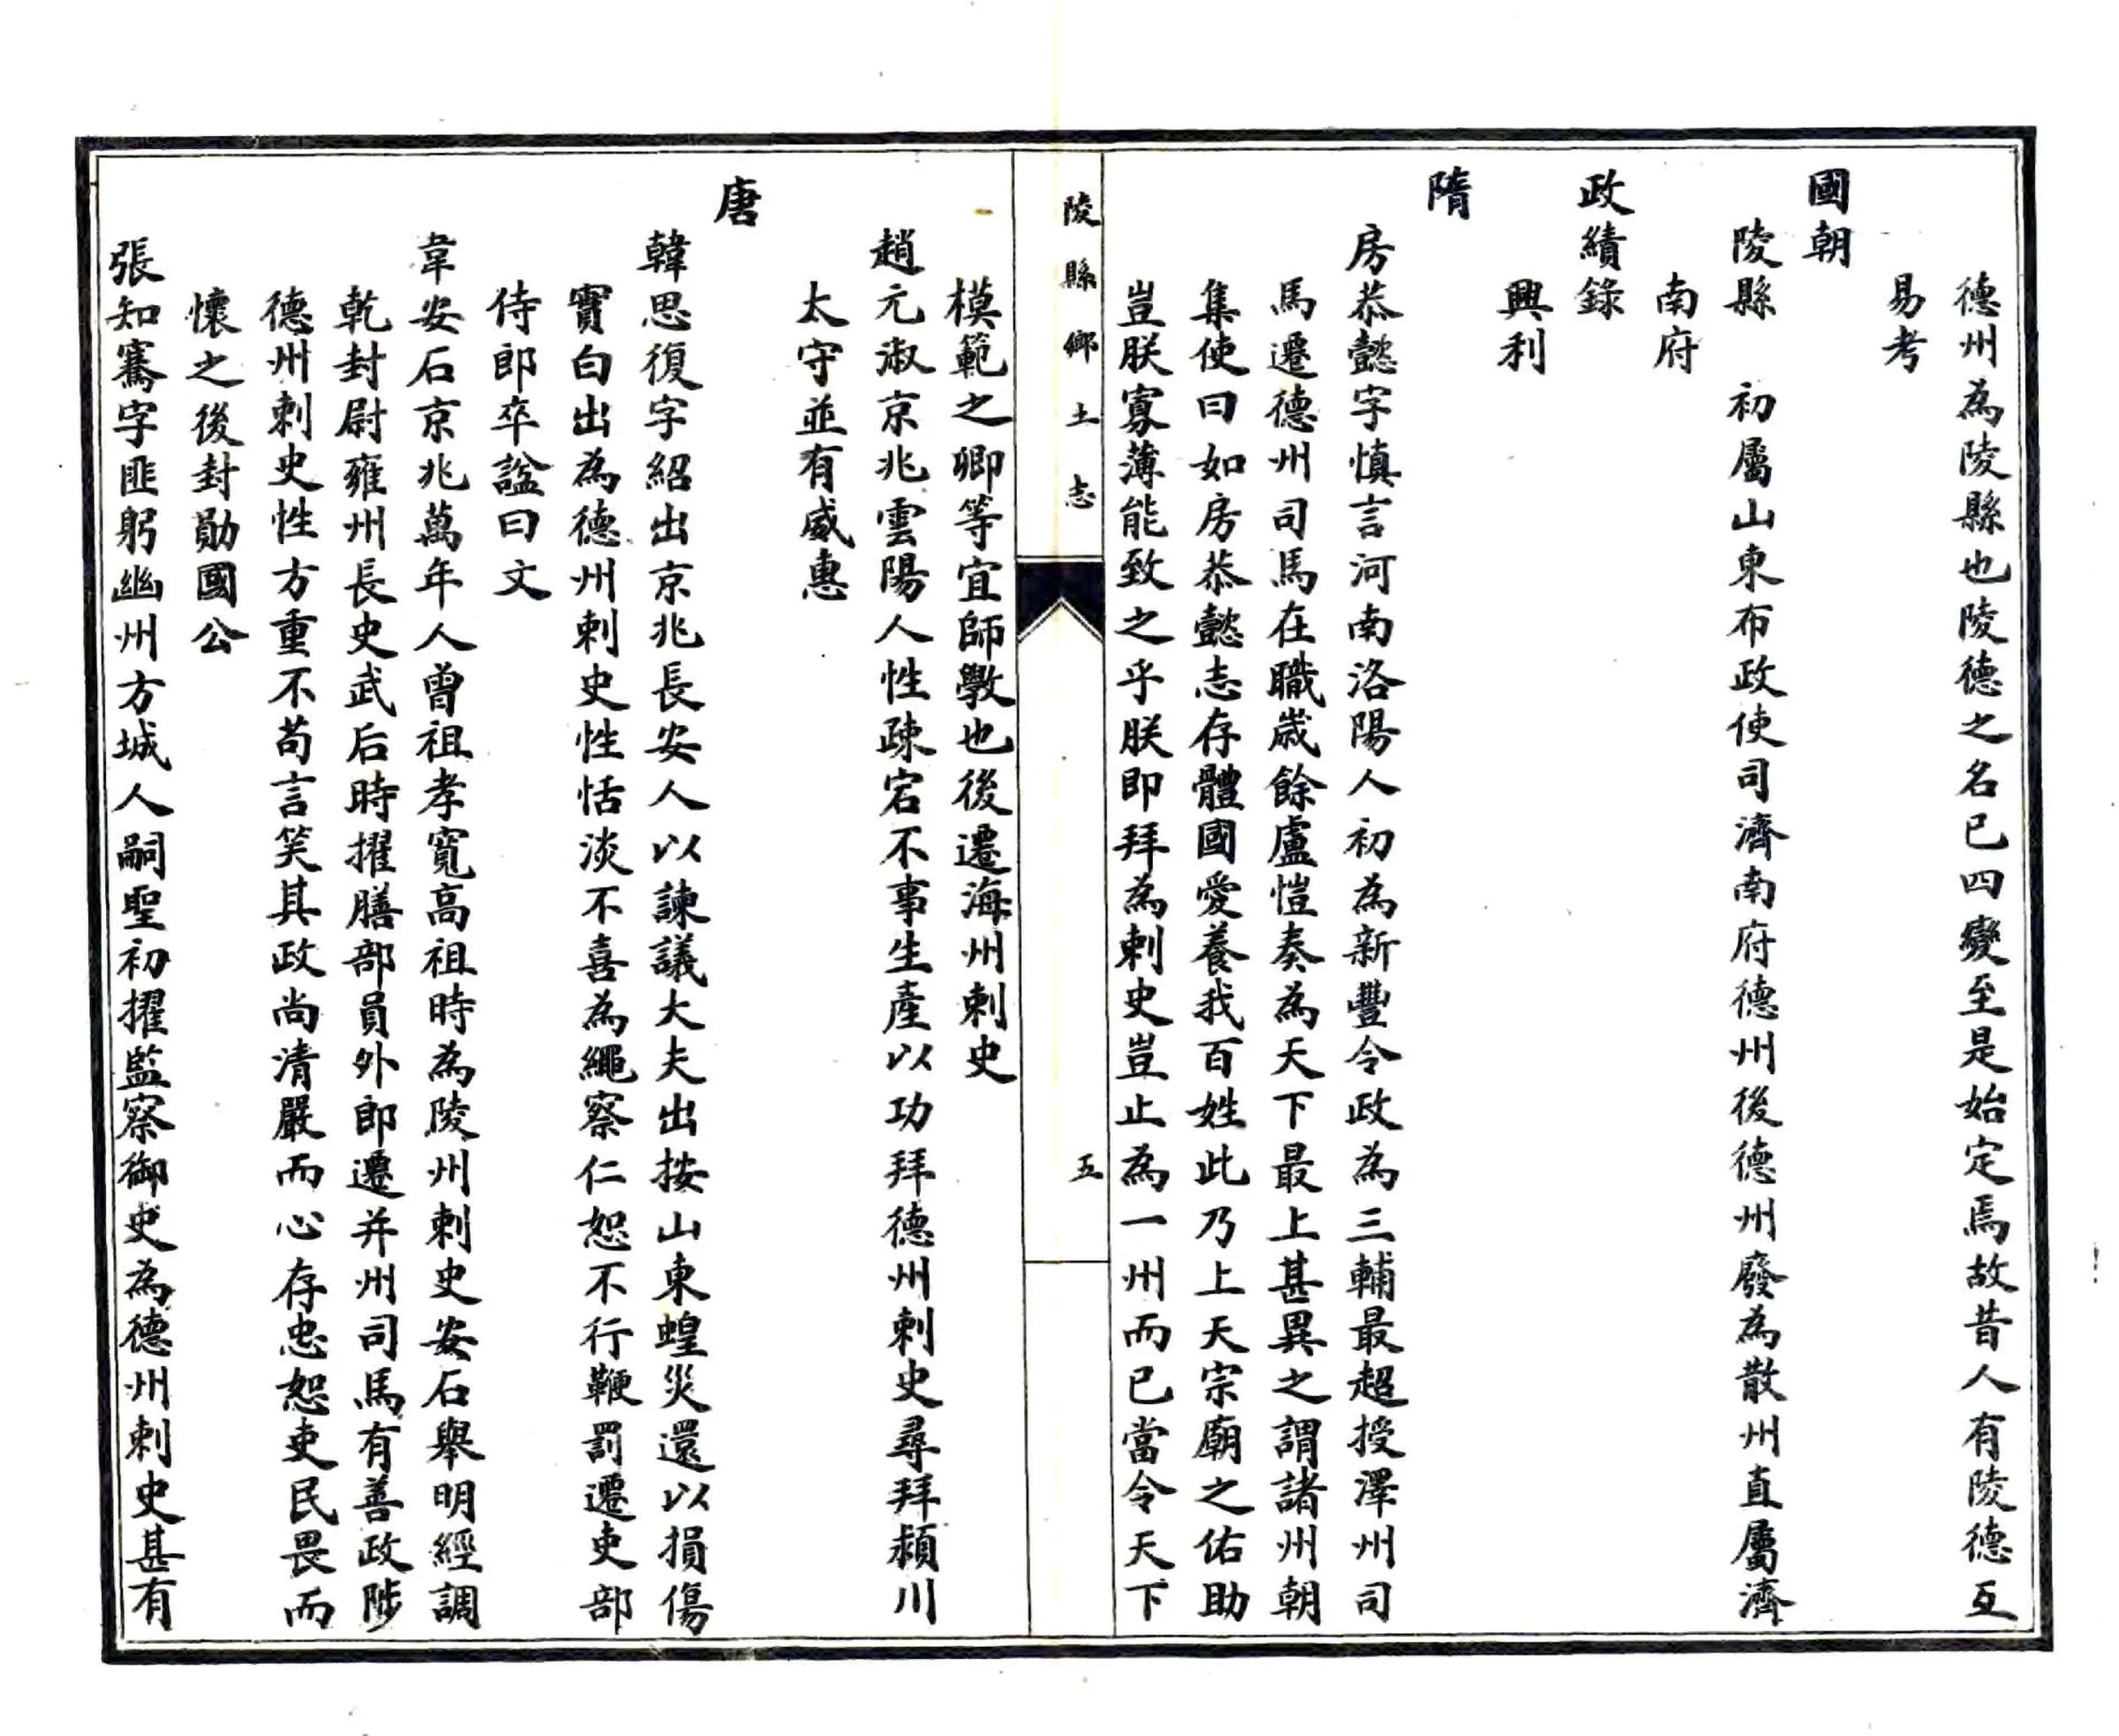 德州為陵縣也陵德之名已四變至是始定焉故昔人有陵德互
易考
國朝
陵縣　初屬山東布政使司濟南府德州後德州廢為散州直屬濟
南府
政績錄
興利
隋
房恭懿字慎言河南洛陽人初為新豐令政為三輔最超授澤州司
馬遷德州司馬在職歲餘盧愷奏為天下最上甚異之謂諸州朝
集使曰如房恭懿志存體國愛養我百姓此乃上天宗廟之佑助
豈朕寡薄能致之乎朕即拜為刺史豈止為一州而已當令天下
陵縣鄉土志
五
模範之卿等宜師斆也後遷海州刺史
趙元淑京兆雲陽人性疎宕不事生產以功拜德州刺史尋拜潁川
太守並有威惠
唐
韓思復字紹出京兆長安人以諫議大夫出按山東蝗災還以損傷
實白出為德州刺史性恬淡不喜為繩察仁恕不行鞭罰遷吏部
侍郎卒諡曰文
韋安石京兆萬年人曾祖孝寬高祖時為陵州刺史安石舉明經調
乾封尉雍州長史武后時擢膳部員外郎遷并州司馬有善政陟
德州刺史性方重不苟言笑其政尚清嚴而心存忠恕吏民畏而
懷之後封勛國公
張知騫字匪躬幽州方城人嗣聖初擢監察御史為德州刺史甚有